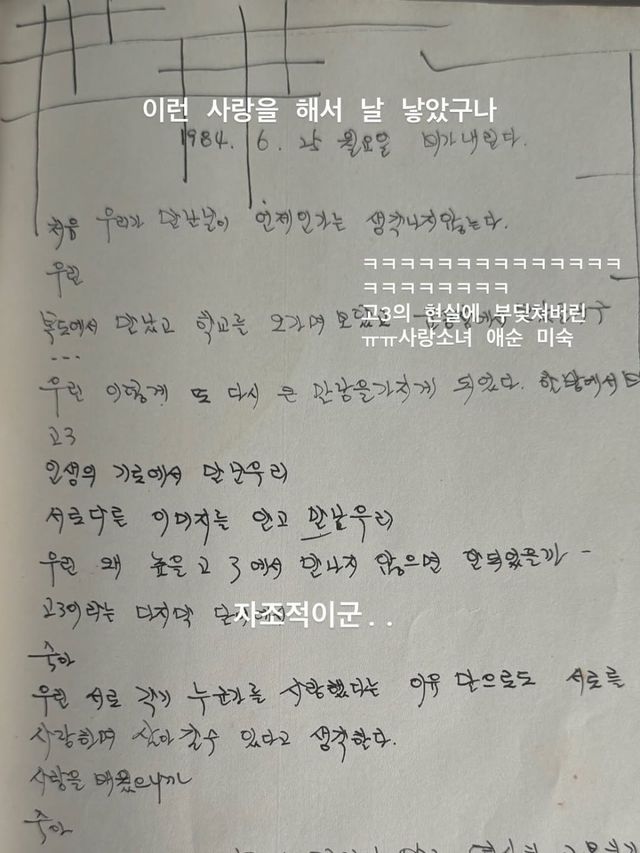 이런 사랑을 해서 날 낳았구나
1984. 6. 25 월요일 비가내린다.
처음 우리가 만난날이 언제인가는 생각나지않는다.
우린
ㅋㅋㅋㅋㅋㅋㅋㅋㅋㅋㅋㅋㅋㅋ
ㅋㅋㅋㅋㅋㅋㅋㅋ
고3의 현실에 부딪쳐버린
ㅠㅠ사랑소녀 애순 미숙
복도에서 만났고 학교를 오가며
...
우린 이렇게 또 다시 큰 만남을가지게 되었다. 한방에서
고3
인생의 기로에서 만난우리
서로다른 이미지를 안고 만난우리
우린 왜 높을 고 3에서 만나지 않으면 안되었을까 -
고3이라는 마지막
자조적이군..
숙아
우린 서로 각기 누군가를 사랑했다는 이유 만으로도 서로를
사랑하며 살아갈수 있다고 생각한다.
사랑을 배웠으니까
숙아